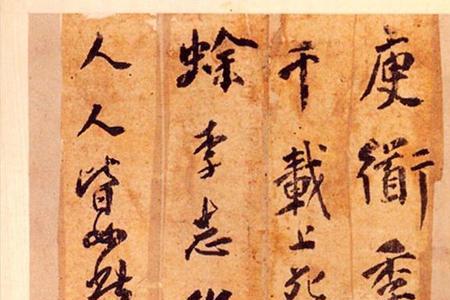 庾衜季
千載上死
蜍李志
人人皆如此